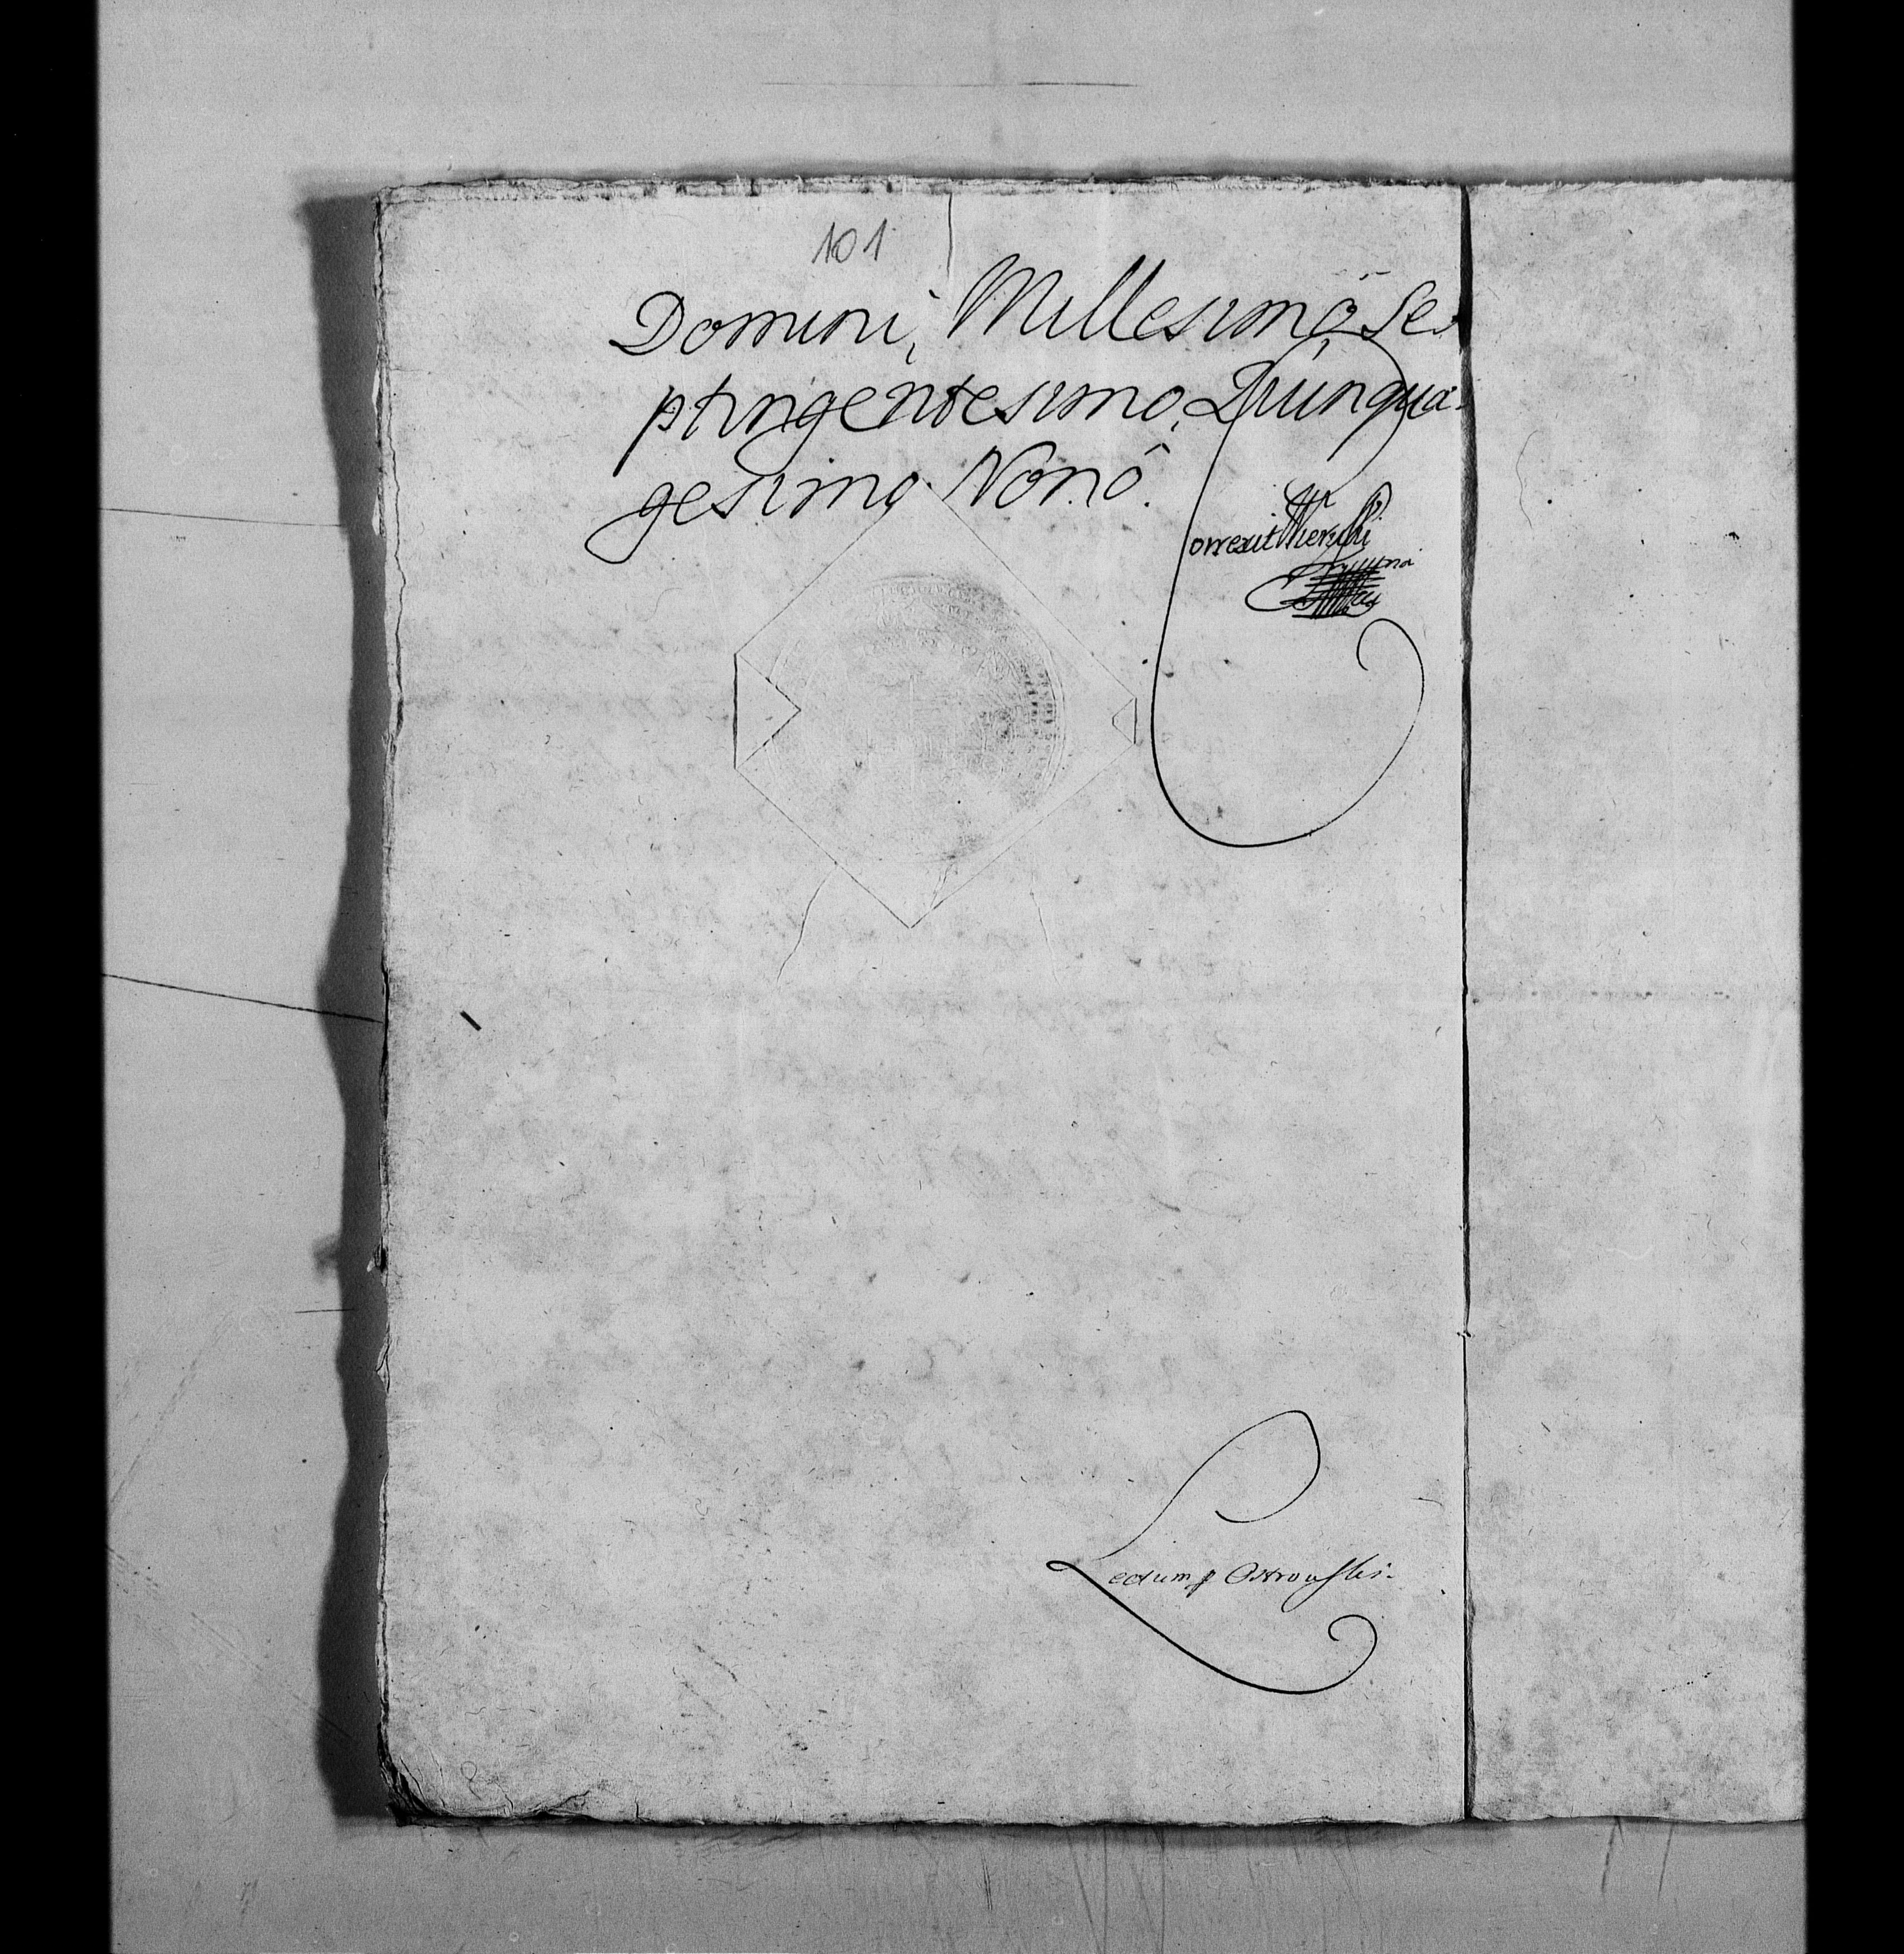 101
Domini, Millesimô Se-
ptingentesimo, Quinqua-
gesimo Nonô.
Correxit
Lectum p Ostrowski.